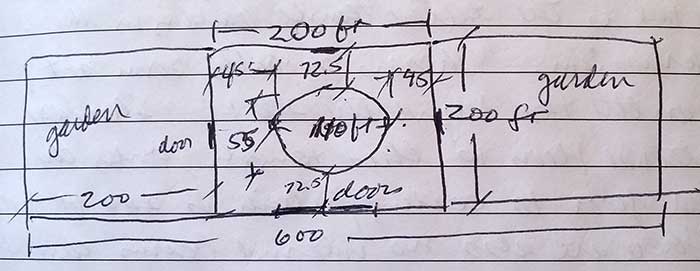 200 ft
45 72.5 45
garden garden
door 55 110 ft 200 ft
72.5 door
200
600